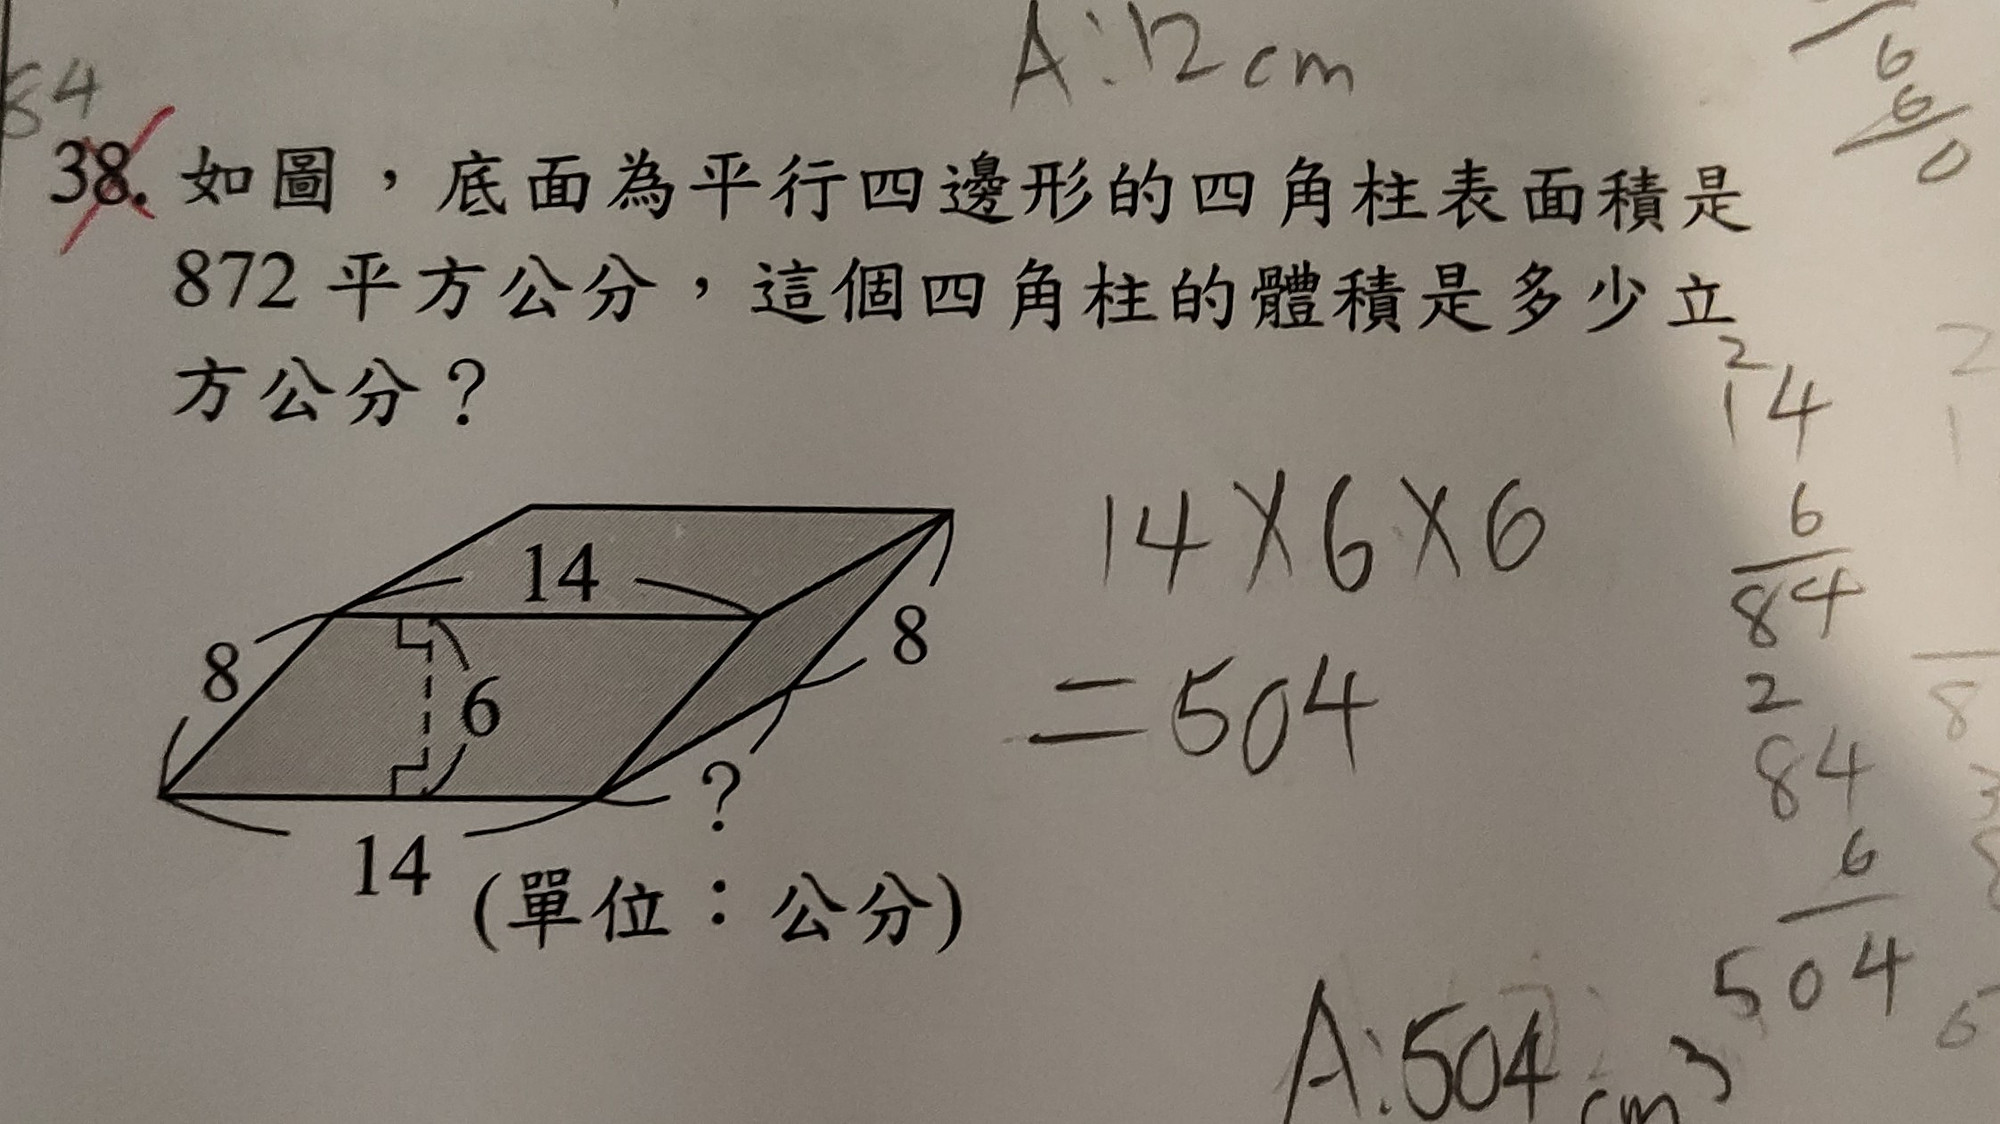 A:12cm
84
38. 如圖，底面為平行四邊形的四角柱表面積是
872 平方公分，這個四角柱的體積是多少立
方公分？
14
8
6
8
?
14
(單位：公分)
14×6×6
=504
A:504cm³
6
6
0
2
14
6
84
2
84
6
504